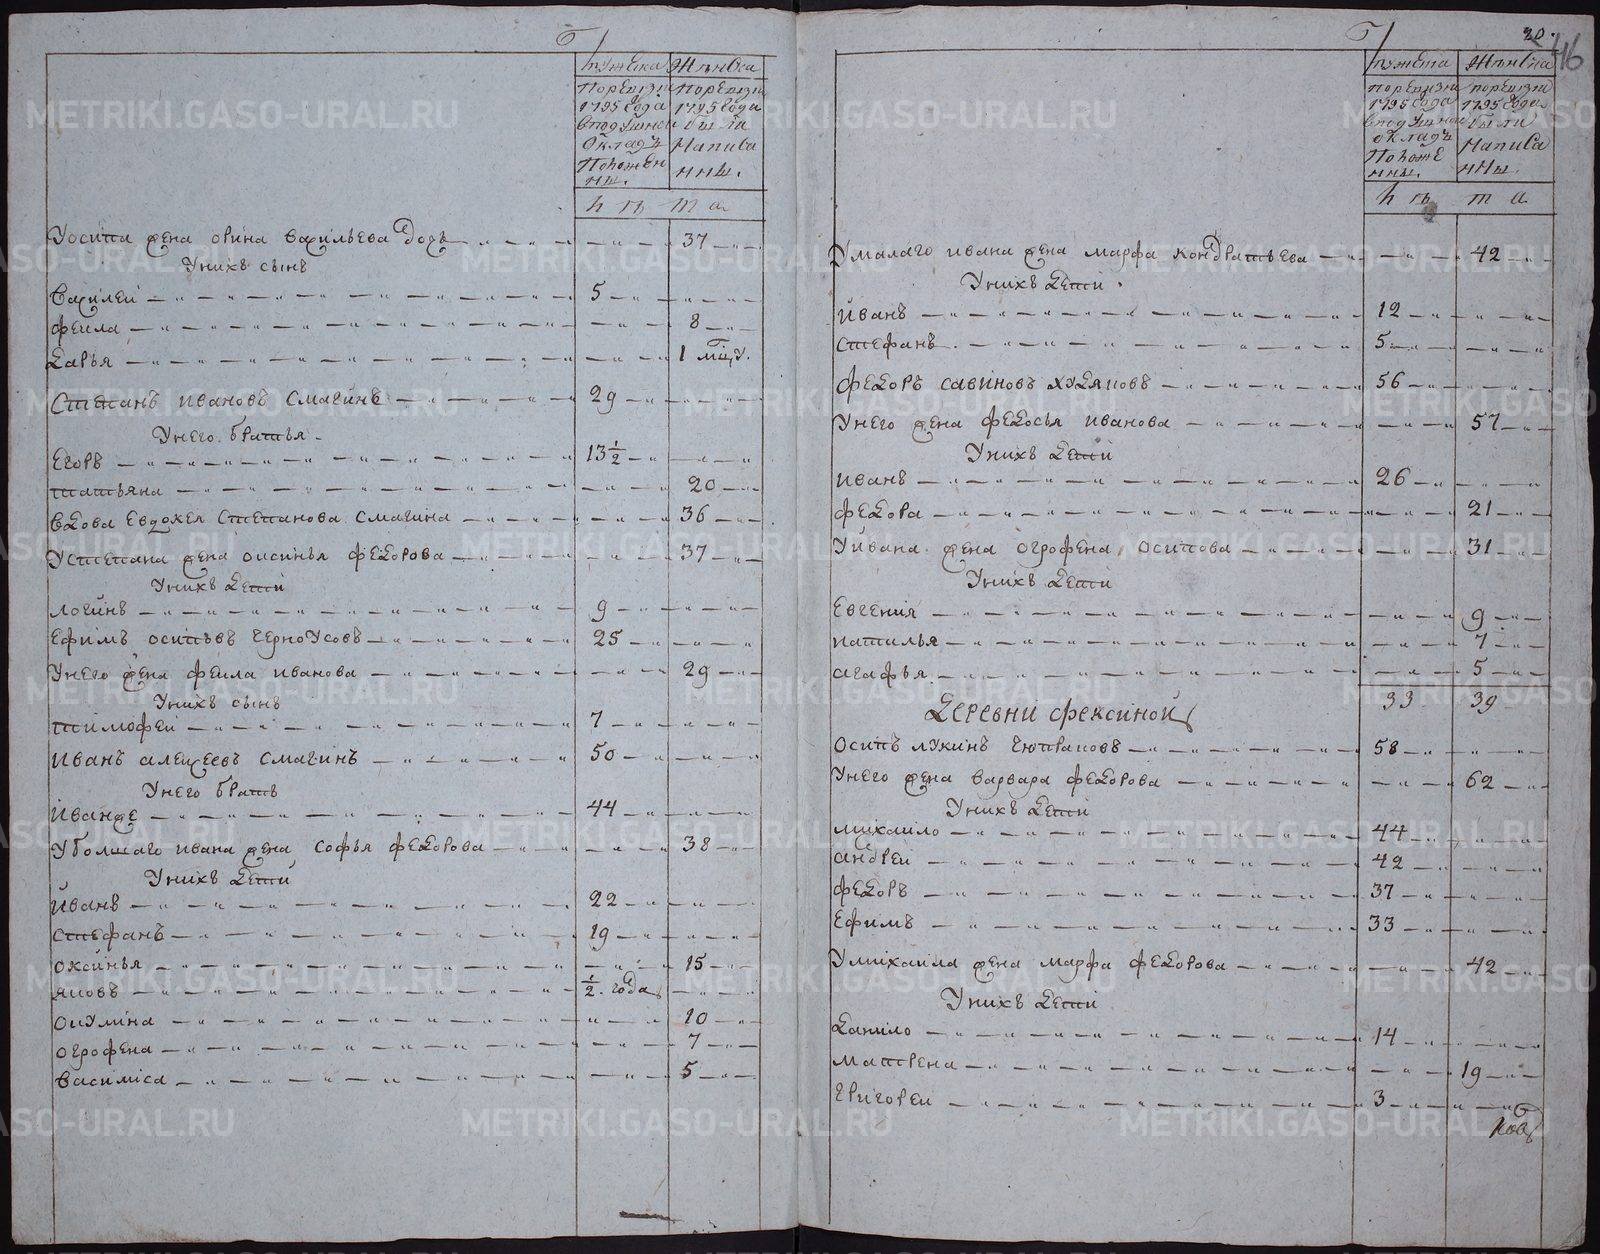 мужеска
Женска
поревизии
1795 года
в подушном
окладъ
Положен
ны.
поревизии
1795 года
были
Написа
нны.
лѣта
Уосипа жена орина васильева дочь 37
Унихъ сынъ
василеи 5
феила 8
дарья 1
Степанъ ивановъ смагинъ 29
Унего братья
Егоръ 13½
татьяна 20
вдова Евдокея Степанова смагина 36
Устепана жена оксинья федорова 37
Унихъ дети
логинъ 9
Ефимъ осиповъ черноусовъ 25
Унего жена феила иванова 29
Унихъ сынъ
тимофеи 7
иванъ алексеевъ смагинъ 50
Унего братъ
иванже 44
Уболшаго ивана жена софья федорова 38
Унихъ дети
иванъ 22
стефанъ 19
оксинья 15
яковъ ½ года
окулина 10
огрофена 7
василиса 5
20.
416
мужеска
Женска
поревизии
1795 года
в подушном
окладъ
Положе
нны.
поревизии
1795 года
были
Написа
нны.
лѣта
Умалаго ивана жена марфа кондратьева 42
Унихъ дети
иванъ 12
стефанъ 5
федоръ савиновъ худяковъ 56
Унего жена федосья иванова 57
Унихъ дети
иванъ 26
федора 21
Уивана жена огрофена осипова 31
Унихъ дети
Евгения 9
наталья 7
агафья 5
33 39
Деревни фексиной
осипъ лукинъ 58
Унего жена варвара федорова 62
Унихъ дети
михаило 44
андреи 42
федоръ 37
Ефимъ 33
Умихаила жена марфа федорова 42
Унихъ дети
данило 14
матрена 19
григореи 3
METRIKI.GASO-URAL.RU